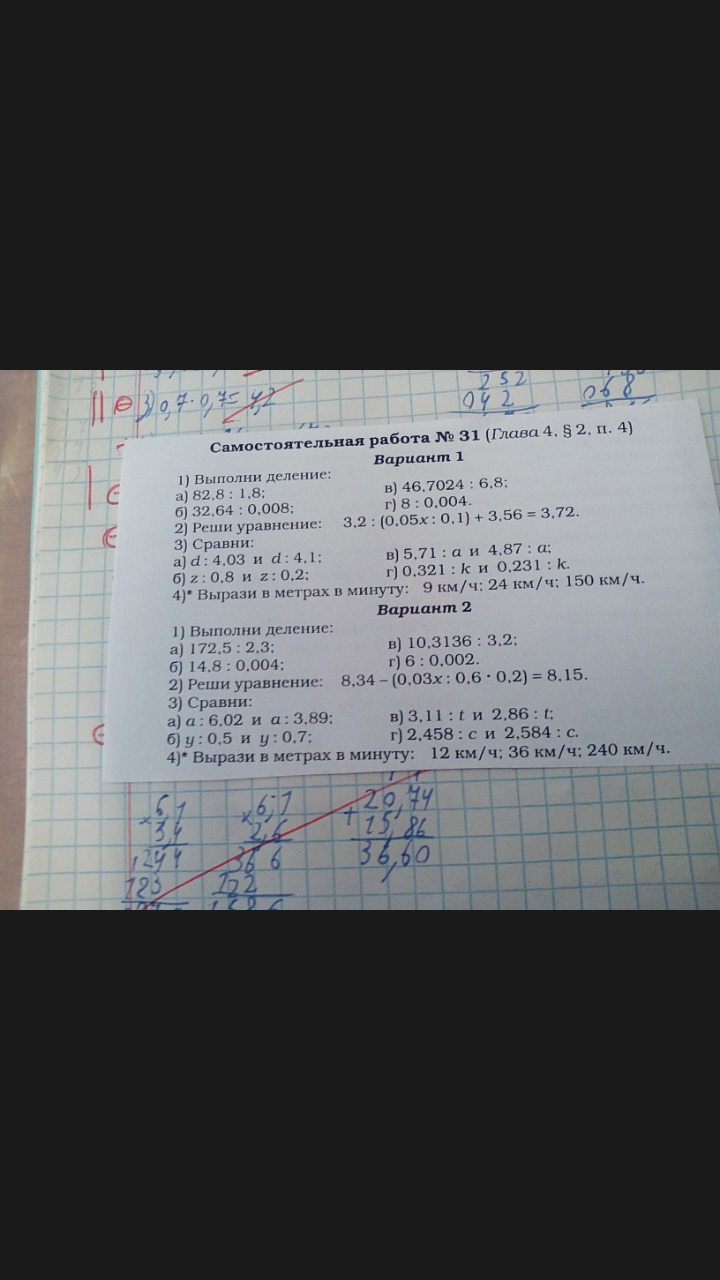 252
042
068
3) 0,7 · 0,7 = 4,2
Самостоятельная работа № 31 (Глава 4, § 2, п. 4)
Вариант 1
1) Выполни деление:
а) 82,8 : 1,8; в) 46,7024 : 6,8;
б) 32,64 : 0,008; г) 8 : 0,004.
2) Реши уравнение: 3,2 : (0,05x : 0,1) + 3,56 = 3,72.
3) Сравни:
а) d : 4,03 и d : 4,1; в) 5,71 : a и 4,87 : a;
б) z : 0,8 и z : 0,2; г) 0,321 : k и 0,231 : k.
4)* Вырази в метрах в минуту: 9 км/ч; 24 км/ч; 150 км/ч.
Вариант 2
1) Выполни деление:
а) 172,5 : 2,3; в) 10,3136 : 3,2;
б) 14,8 : 0,004; г) 6 : 0,002.
2) Реши уравнение: 8,34 – (0,03x : 0,6 · 0,2) = 8,15.
3) Сравни:
а) a : 6,02 и a : 3,89; в) 3,11 : t и 2,86 : t;
б) y : 0,5 и y : 0,7; г) 2,458 : c и 2,584 : c.
4)* Вырази в метрах в минуту: 12 км/ч; 36 км/ч; 240 км/ч.
× 6,1 × 6,1 + 20,74
3,4 2,6 15,86
244 366 36,60
183 122